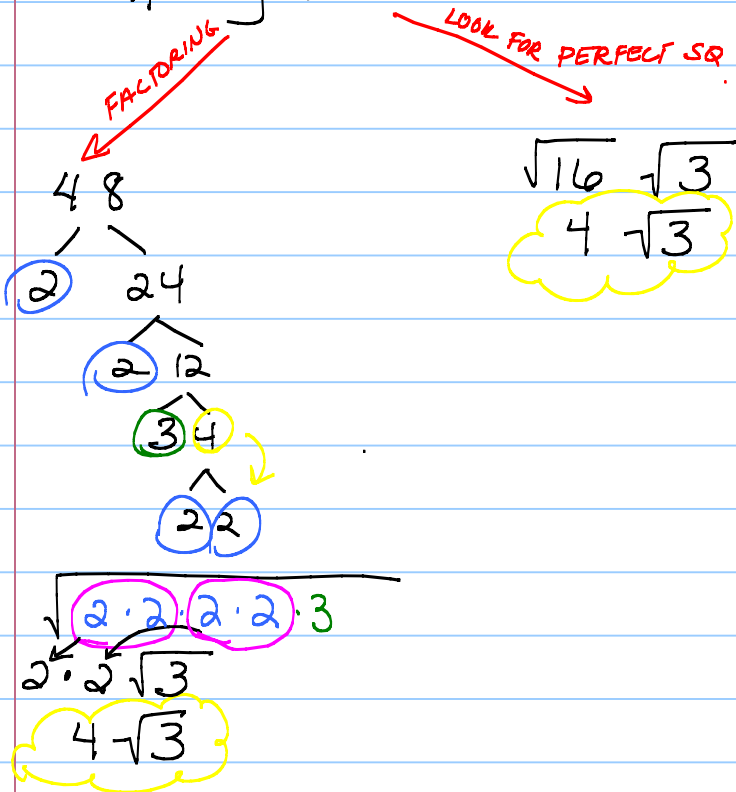 FACTORING
LOOK FOR PERFECT SQ
48
2 24
2 12
3 4
2 2
√2·2·2·2·3
2·2√3
4√3
√16 √3
4 √3